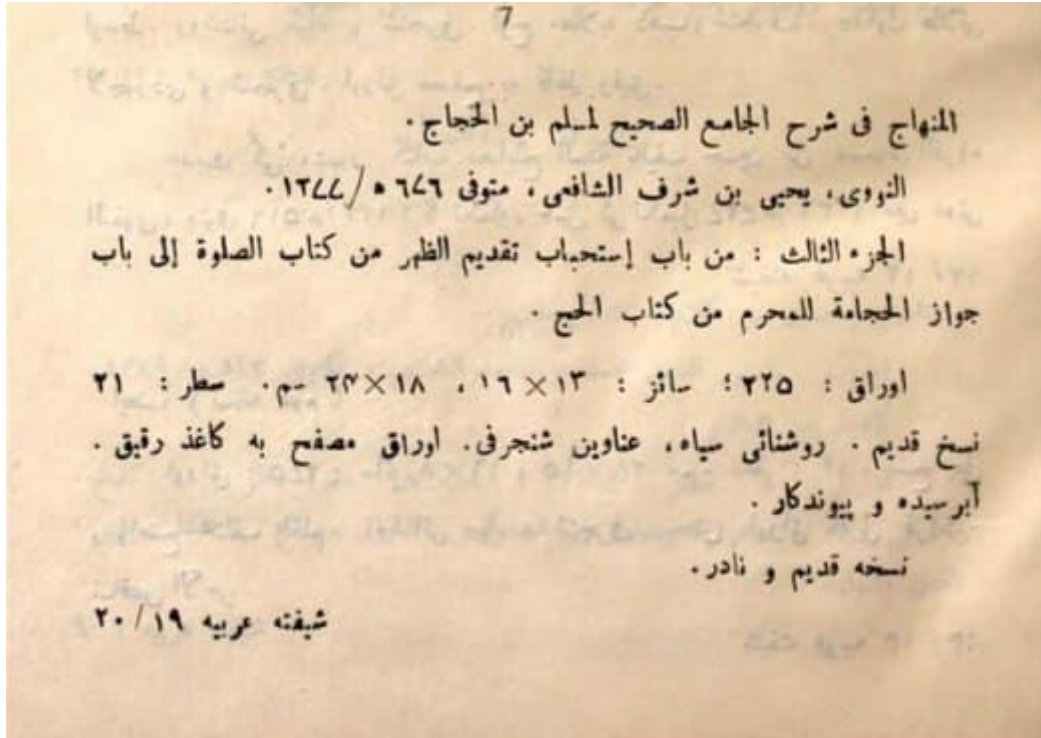 7
المنهاج فى شرح الجامع الصحيح لمسلم بن الحجاج .
النووى، يحيى بن شرف الشافعى، متوفى ٦٧٦ ه/١٢٧٧.
الجزء الثالث : من باب إستحباب تقديم الظهر من كتاب الصلوة إلى باب
جواز الحجامة للمحرم من كتاب الحج .
اوراق : ٢٢٥؛ سائز : ١٣×١٦، ١٨×٢٤ سم. سطار: ٢١
نسخ قديم . روشنائى سياه، عناوين شنجرفى. اوراق مصفح به كاغذ رقيق .
آبرسيده و پيوندكار .
نسخه قديم و نادر .
شيفته عربيه ٢٠/١٩